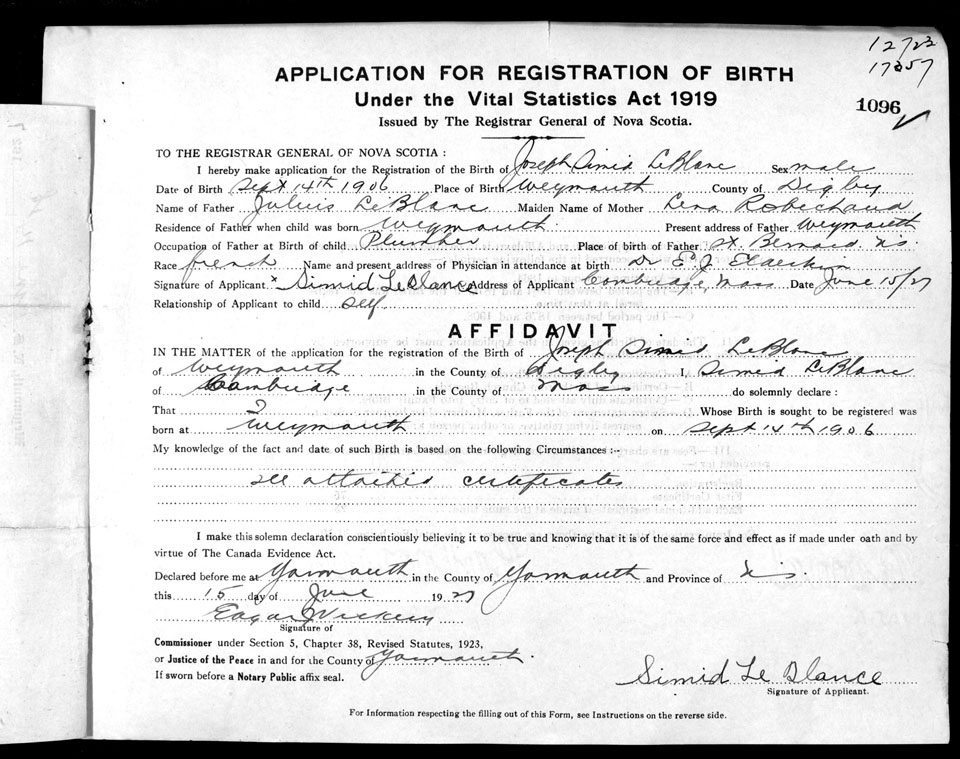 12723
17057
APPLICATION FOR REGISTRATION OF BIRTH
Under the Vital Statistics Act 1919
1096
Issued by The Registrar General of Nova Scotia.
TO THE REGISTRAR GENERAL OF NOVA SCOTIA :
I hereby make application for the Registration of the Birth of Joseph Simid LeBlanc Sex male
Date of Birth Sept 14th 1906 Place of Birth Weymouth County of Digby
Name of Father Julius LeBlanc Maiden Name of Mother Lena Robichaud
Residence of Father when child was born Weymouth Present address of Father Weymouth
Occupation of Father at Birth of child Plumber Place of birth of Father St. Bernard N.S.
Race french Name and present address of Physician in attendance at birth Dr E. J. Elderkin
Signature of Applicant x Simid Le Blance Address of Applicant Cambridge, Mass Date June 15/27
Relationship of Applicant to child self
AFFIDAVIT
IN THE MATTER of the application for the registration of the Birth of Joseph Simid LeBlanc
of Weymouth in the County of Digby I, Simid LeBlanc
of Cambridge in the County of Mass do solemnly declare :
That I Whose Birth is sought to be registered was
born at Weymouth on Sept 14th 1906
My knowledge of the fact and date of such Birth is based on the following Circumstances :-
see attached certificates
I make this solemn declaration conscientiously believing it to be true and knowing that it is of the same force and effect as if made under oath and by
virtue of The Canada Evidence Act.
Declared before me at Yarmouth in the County of Yarmouth and Province of N.S.
this 15 day of June 1927
Edgar J Vickery
Signature of
Commissioner under Section 5, Chapter 38, Revised Statutes, 1923,
or Justice of the Peace in and for the County of Yarmouth.
If sworn before a Notary Public affix seal.
Simid Le Blance
Signature of Applicant.
For Information respecting the filling out of this Form, see Instructions on the reverse side.